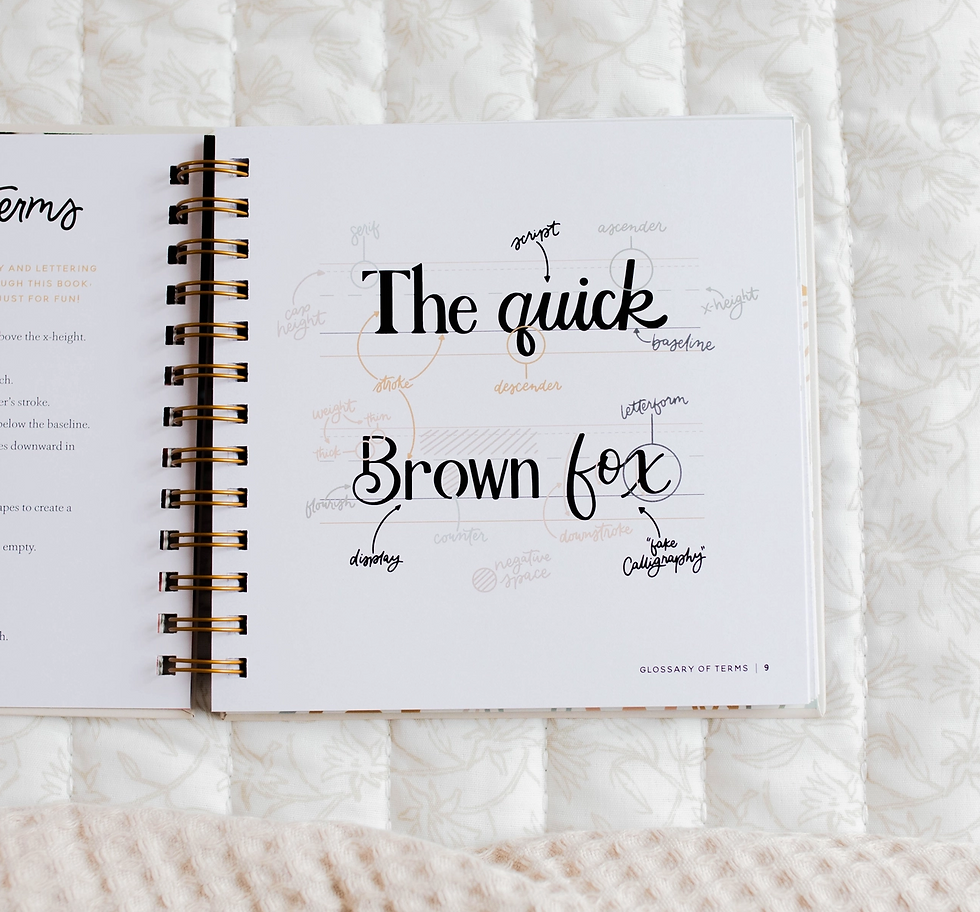 erms
Y AND LETTERING
UGH THIS BOOK-
JUST FOR FUN!
bove the x-height.
ch.
er's stroke.
below the baseline.
es downward in
apes to create a
empty.
h.
serif
script
ascender
cap
height
x-height
The quick
baseline
stroke
descender
weight
thin
thick
letterform
Brown fox
flourish
counter
downstroke
display
"fake
Calligraphy"
negative
space
GLOSSARY OF TERMS | 9